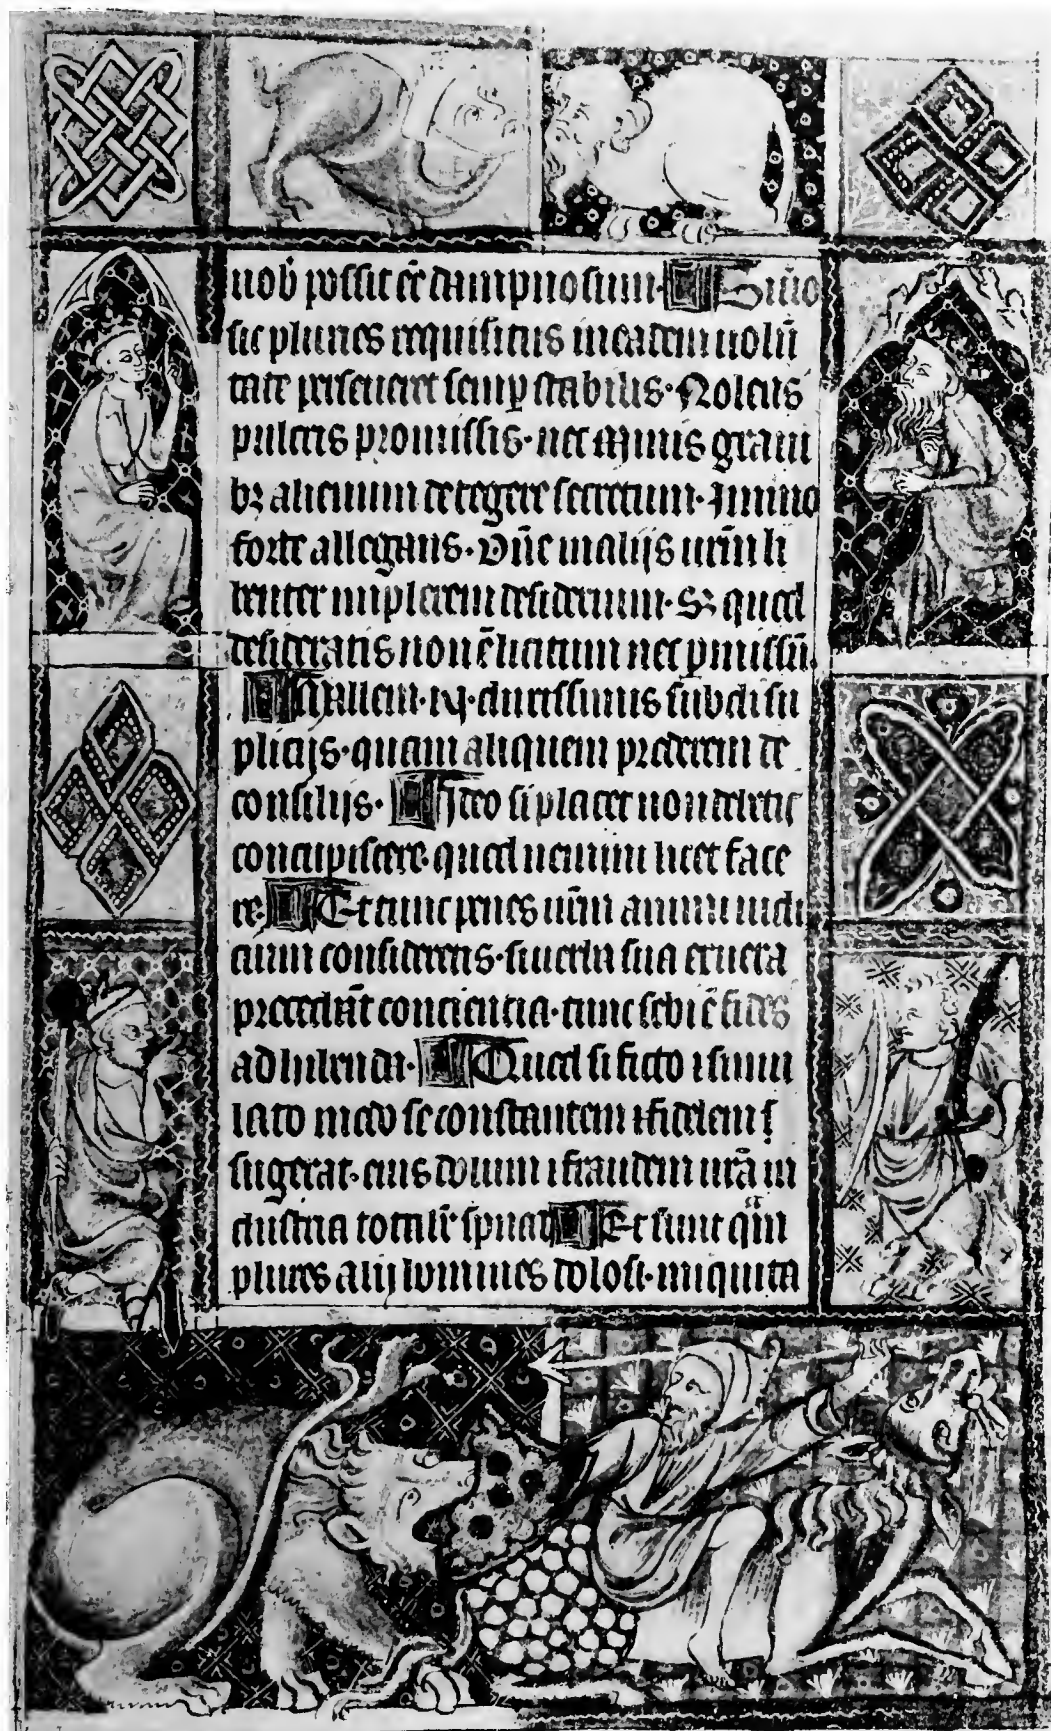 nob̄ possit eē dampnosum. Si uo̅
sic pluries requisitus in eadem uolū
tate perseueret semꝑ stabilis. Nolens
pulcris promissis. nec minis graui
bꝫ alicuium detegere secretum. Immo
forte allegans. Dn̄e in alijs ur̄m li
benter implerem desiderium. Sꝫ quod
desideratis non ē licitum nec ꝑmissū.
Mallem .n. durissimis subdi su
plicijs. quam aliquem prederem de
consilijs. Ideo si placet non debetis
concupiscere. quod nemini licet face
re. Et tunc penes ur̄m animū iudi
cium consideretis. si uerba sua ex uera
procedāt conciencia. tunc sibi ē fides
adhibenda. Quod si ficto ⁊ simu
lato modo se constantem ⁊ fidelem s
sugerat. eius dolum ⁊ fraudem urā in
dustria totalit̄ spuat. Et sunt qm̄
plures alij homines dolosi. iniquita